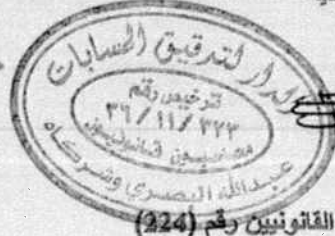 الدار لتدقيق الحسابات
ترخيص رقم
٣٦/١١/٣٢٣
محاسبون قانونيون
عبدالله البصري وشركاه
القانونيين رقم (224)